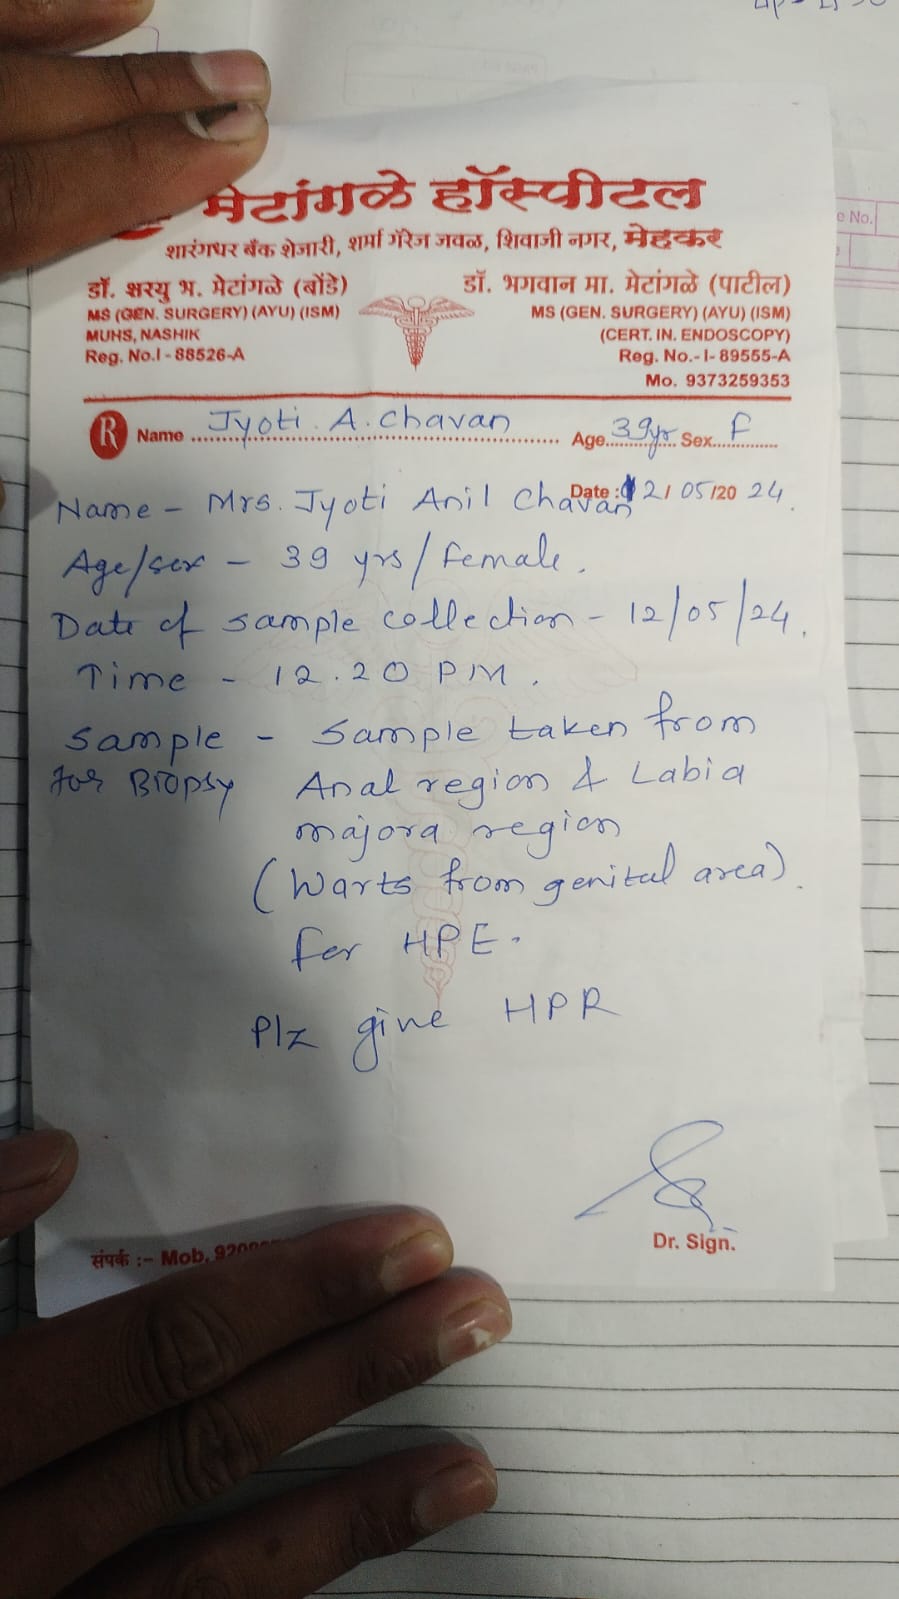 मेटांगळे हॉस्पीटल
शारंगधर बँक शेजारी, शर्मा गॅरेज जवळ, शिवाजी नगर, मेहकर
डॉ. शरयु भ. मेटांगळे (बोंडे)
MS (GEN. SURGERY) (AYU) (ISM)
MUHS, NASHIK
Reg. No.I - 88526-A
डॉ. भगवान मा. मेटांगळे (पाटील)
MS (GEN. SURGERY) (AYU) (ISM)
(CERT. IN. ENDOSCOPY)
Reg. No.-I- 89555-A
Mo. 9373259353
R Name Jyoti. A. Chavan Age. 39yr Sex. F
Date : 12/ 05/20 24.
Name - Mrs. Jyoti Anil Chavan
Age/sex - 39 yrs/female.
Date of sample collection - 12/05/24.
Time - 12.20 PM.
Sample - Sample taken from
for Biopsy Anal region & Labia
majora region
(Warts from genital area).
for HPE.
Plz give HPR
Dr. Sign.
संपर्क :- Mob.
e No.